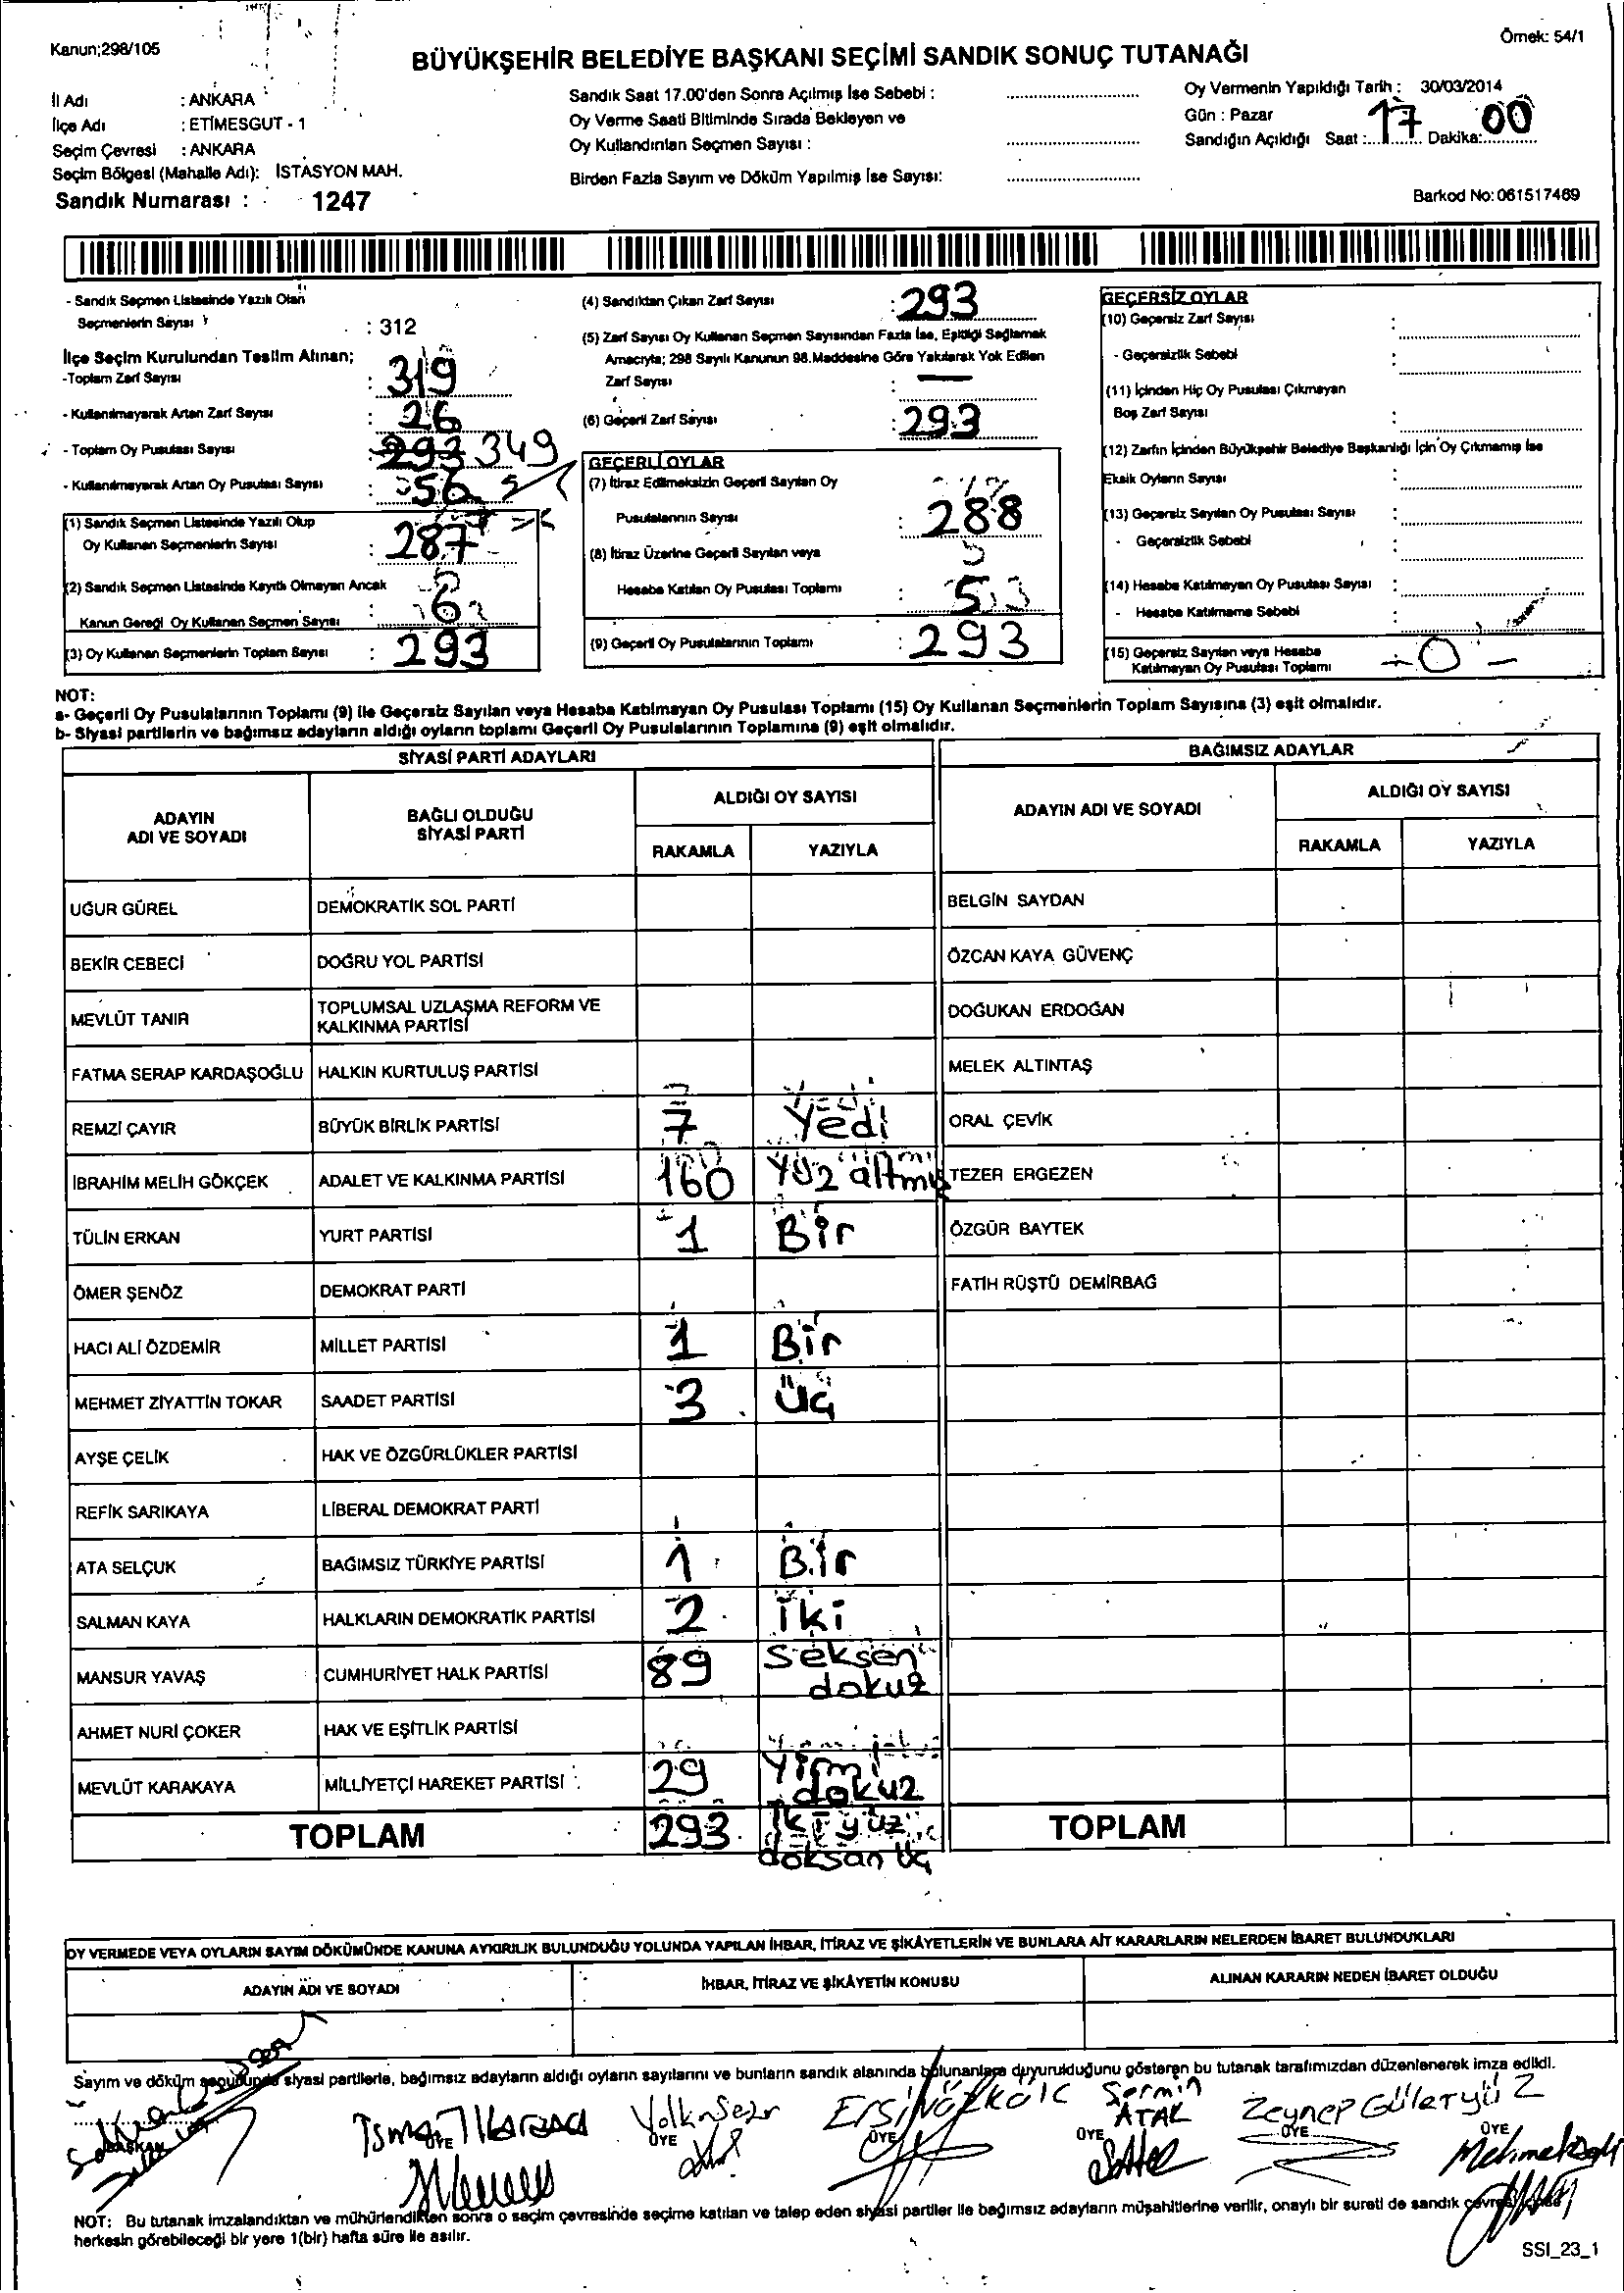 Kanun;298/105
Örnek: 54/1
BÜYÜKŞEHİR BELEDİYE BAŞKANI SEÇİMİ SANDIK SONUÇ TUTANAĞI
İl Adı : ANKARA
İlçe Adı : ETİMESGUT - 1
Seçim Çevresi : ANKARA
Seçim Bölgesi (Mahalle Adı): İSTASYON MAH.
Sandık Numarası : 1247
Sandık Saat 17.00'den Sonra Açılmış İse Sebebi :
Oy Verme Saati Bitiminde Sırada Bekleyen ve
Oy Kullandırılan Seçmen Sayısı :
Birden Fazla Sayım ve Döküm Yapılmış İse Sayısı:
Oy Vermenin Yapıldığı Tarih : 30/03/2014
Gün : Pazar
Sandığın Açıldığı Saat : 17 Dakika: 00
Barkod No: 061517469
- Sandık Seçmen Listesinde Yazılı Olan
Seçmenlerin Sayısı : 312
İlçe Seçim Kurulundan Teslim Alınan;
-Toplam Zarf Sayısı : 319
- Kullanılmayarak Artan Zarf Sayısı : 26
- Toplam Oy Pusulası Sayısı : 293 349
- Kullanılmayarak Artan Oy Pusulası Sayısı : 56
(1) Sandık Seçmen Listesinde Yazılı Olup
Oy Kullanan Seçmenlerin Sayısı : 287
(2) Sandık Seçmen Listesinde Kayıtlı Olmayan Ancak
Kanun Gereği Oy Kullanan Seçmen Sayısı : 6
(3) Oy Kullanan Seçmenlerin Toplam Sayısı : 293
(4) Sandıktan Çıkan Zarf Sayısı : 293
(5) Zarf Sayısı Oy Kullanan Seçmen Sayısından Fazla İse, Eşitliği Sağlamak
Amacıyla; 298 Sayılı Kanunun 98.Maddesine Göre Yakılarak Yok Edilen
Zarf Sayısı : —
(6) Geçerli Zarf Sayısı : 293
GEÇERLİ OYLAR
(7) İtiraz Edilmeksizin Geçerli Sayılan Oy
Pusulalarının Sayısı : 288
(8) İtiraz Üzerine Geçerli Sayılan veya
Hesaba Katılan Oy Pusulası Toplamı : 5
(9) Geçerli Oy Pusulalarının Toplamı : 293
GEÇERSİZ OYLAR
(10) Geçersiz Zarf Sayısı :
- Geçersizlik Sebebi :
(11) İçinden Hiç Oy Pusulası Çıkmayan
Boş Zarf Sayısı :
(12) Zarfın İçinden Büyükşehir Belediye Başkanlığı İçin Oy Çıkmamış İse
Eksik Oyların Sayısı :
(13) Geçersiz Sayılan Oy Pusulası Sayısı :
- Geçersizlik Sebebi :
(14) Hesaba Katılmayan Oy Pusulası Sayısı :
- Hesaba Katılmama Sebebi :
(15) Geçersiz Sayılan veya Hesaba
Katılmayan Oy Pusulası Toplamı - 0 -
NOT:
a- Geçerli Oy Pusulalarının Toplamı (9) ile Geçersiz Sayılan veya Hesaba Katılmayan Oy Pusulası Toplamı (15) Oy Kullanan Seçmenlerin Toplam Sayısına (3) eşit olmalıdır.
b- Siyasi partilerin ve bağımsız adayların aldığı oyların toplamı Geçerli Oy Pusulalarının Toplamına (9) eşit olmalıdır.
SİYASİ PARTİ ADAYLARI
ADAYIN ADI VE SOYADI BAĞLI OLDUĞU SİYASİ PARTİ ALDIĞI OY SAYISI
RAKAMLA YAZIYLA
UĞUR GÜREL DEMOKRATİK SOL PARTİ
BEKİR CEBECİ DOĞRU YOL PARTİSİ
MEVLÜT TANIR TOPLUMSAL UZLAŞMA REFORM VE KALKINMA PARTİSİ
FATMA SERAP KARDAŞOĞLU HALKIN KURTULUŞ PARTİSİ
REMZİ ÇAYIR BÜYÜK BİRLİK PARTİSİ 7 Yedi
İBRAHİM MELİH GÖKÇEK ADALET VE KALKINMA PARTİSİ 160 Yüz altmış
TÜLİN ERKAN YURT PARTİSİ 1 Bir
ÖMER ŞENÖZ DEMOKRAT PARTİ
HACI ALİ ÖZDEMİR MİLLET PARTİSİ 1 Bir
MEHMET ZİYATTİN TOKAR SAADET PARTİSİ 3 Üç
AYŞE ÇELİK HAK VE ÖZGÜRLÜKLER PARTİSİ
REFİK SARIKAYA LİBERAL DEMOKRAT PARTİ
ATA SELÇUK BAĞIMSIZ TÜRKİYE PARTİSİ 1 Bir
SALMAN KAYA HALKLARIN DEMOKRATİK PARTİSİ 2 iki
MANSUR YAVAŞ CUMHURİYET HALK PARTİSİ 89 Seksen dokuz
AHMET NURİ ÇOKER HAK VE EŞİTLİK PARTİSİ
MEVLÜT KARAKAYA MİLLİYETÇİ HAREKET PARTİSİ 29 Yirmi dokuz
TOPLAM 293 İkiyüz doksan üç
BAĞIMSIZ ADAYLAR
ADAYIN ADI VE SOYADI ALDIĞI OY SAYISI
RAKAMLA YAZIYLA
BELGİN SAYDAN
ÖZCAN KAYA GÜVENÇ
DOĞUKAN ERDOĞAN
MELEK ALTINTAŞ
ORAL ÇEVİK
TEZER ERGEZEN
ÖZGÜR BAYTEK
FATİH RÜŞTÜ DEMİRBAĞ
TOPLAM
OY VERMEDE VEYA OYLARIN SAYIM DÖKÜMÜNDE KANUNA AYKIRILIK BULUNDUĞU YOLUNDA YAPILAN İHBAR, İTİRAZ VE ŞİKÂYETLERİN VE BUNLARA AİT KARARLARIN NELERDEN İBARET BULUNDUKLARI
ADAYIN ADI VE SOYADI İHBAR, İTİRAZ VE ŞİKÂYETİN KONUSU ALINAN KARARIN NEDEN İBARET OLDUĞU
Sayım ve döküm sonucunda siyasi partilerle, bağımsız adayların aldığı oyların sayılarını ve bunların sandık alanında bulunanlara duyurulduğunu gösteren bu tutanak tarafımızdan düzenlenerek imza edildi.
Volkan Sezer Ersin Özkök Sermin ATAK Zeynep Güleryüz
BAŞKAN ÜYE ÜYE ÜYE ÜYE ÜYE ÜYE
NOT: Bu tutanak imzalandıktan ve mühürlendikten sonra o seçim çevresinde seçime katılan ve talep eden siyasi partiler ile bağımsız adayların müşahitlerine verilir, onaylı bir sureti de sandık çevresi içinde
herkesin görebileceği bir yere 1(bir) hafta süre ile asılır.
SSI_23_1